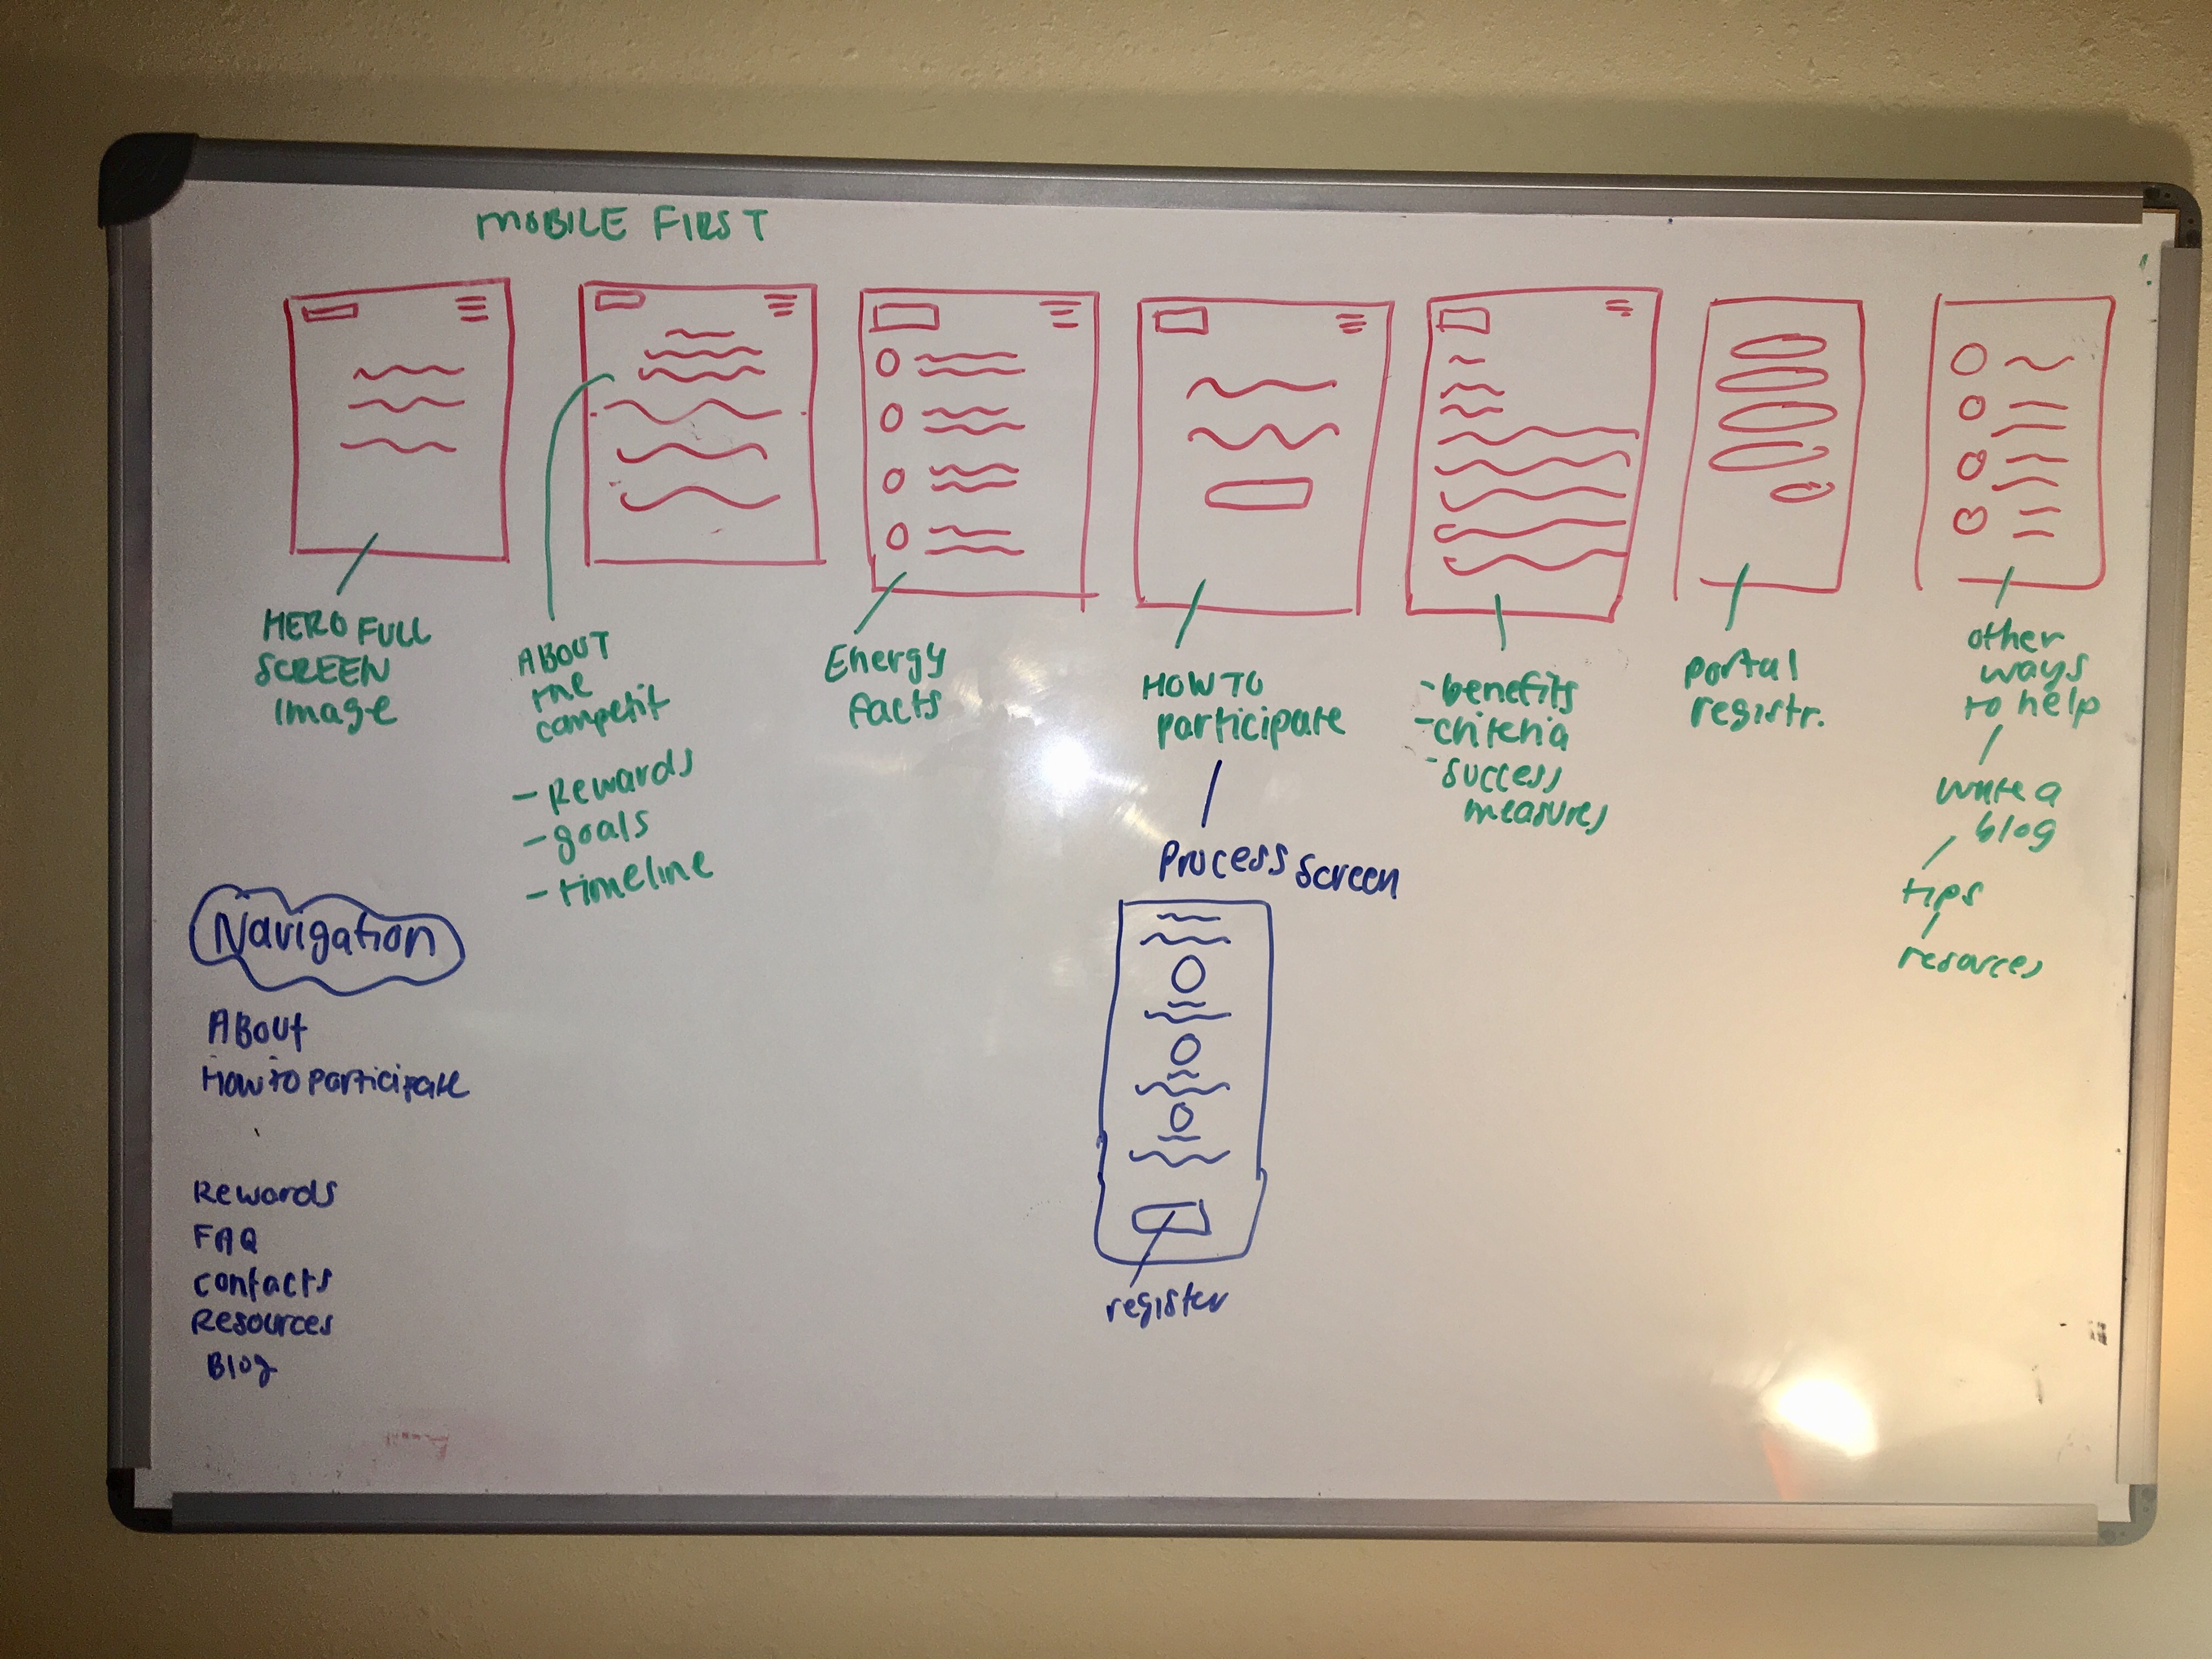 MOBILE FIRST
HERO FULL
SCREEN
image
ABOUT
the
competit
- Rewards
- goals
- timeline
Energy
facts
HOW TO
participate
Process screen
register
- benefits
- criteria
- success
measures
portal
registr.
other
ways
to help
write a
blog
tips
resorces
Navigation
About
How to participate
Rewards
FAQ
contacts
Resources
Blog